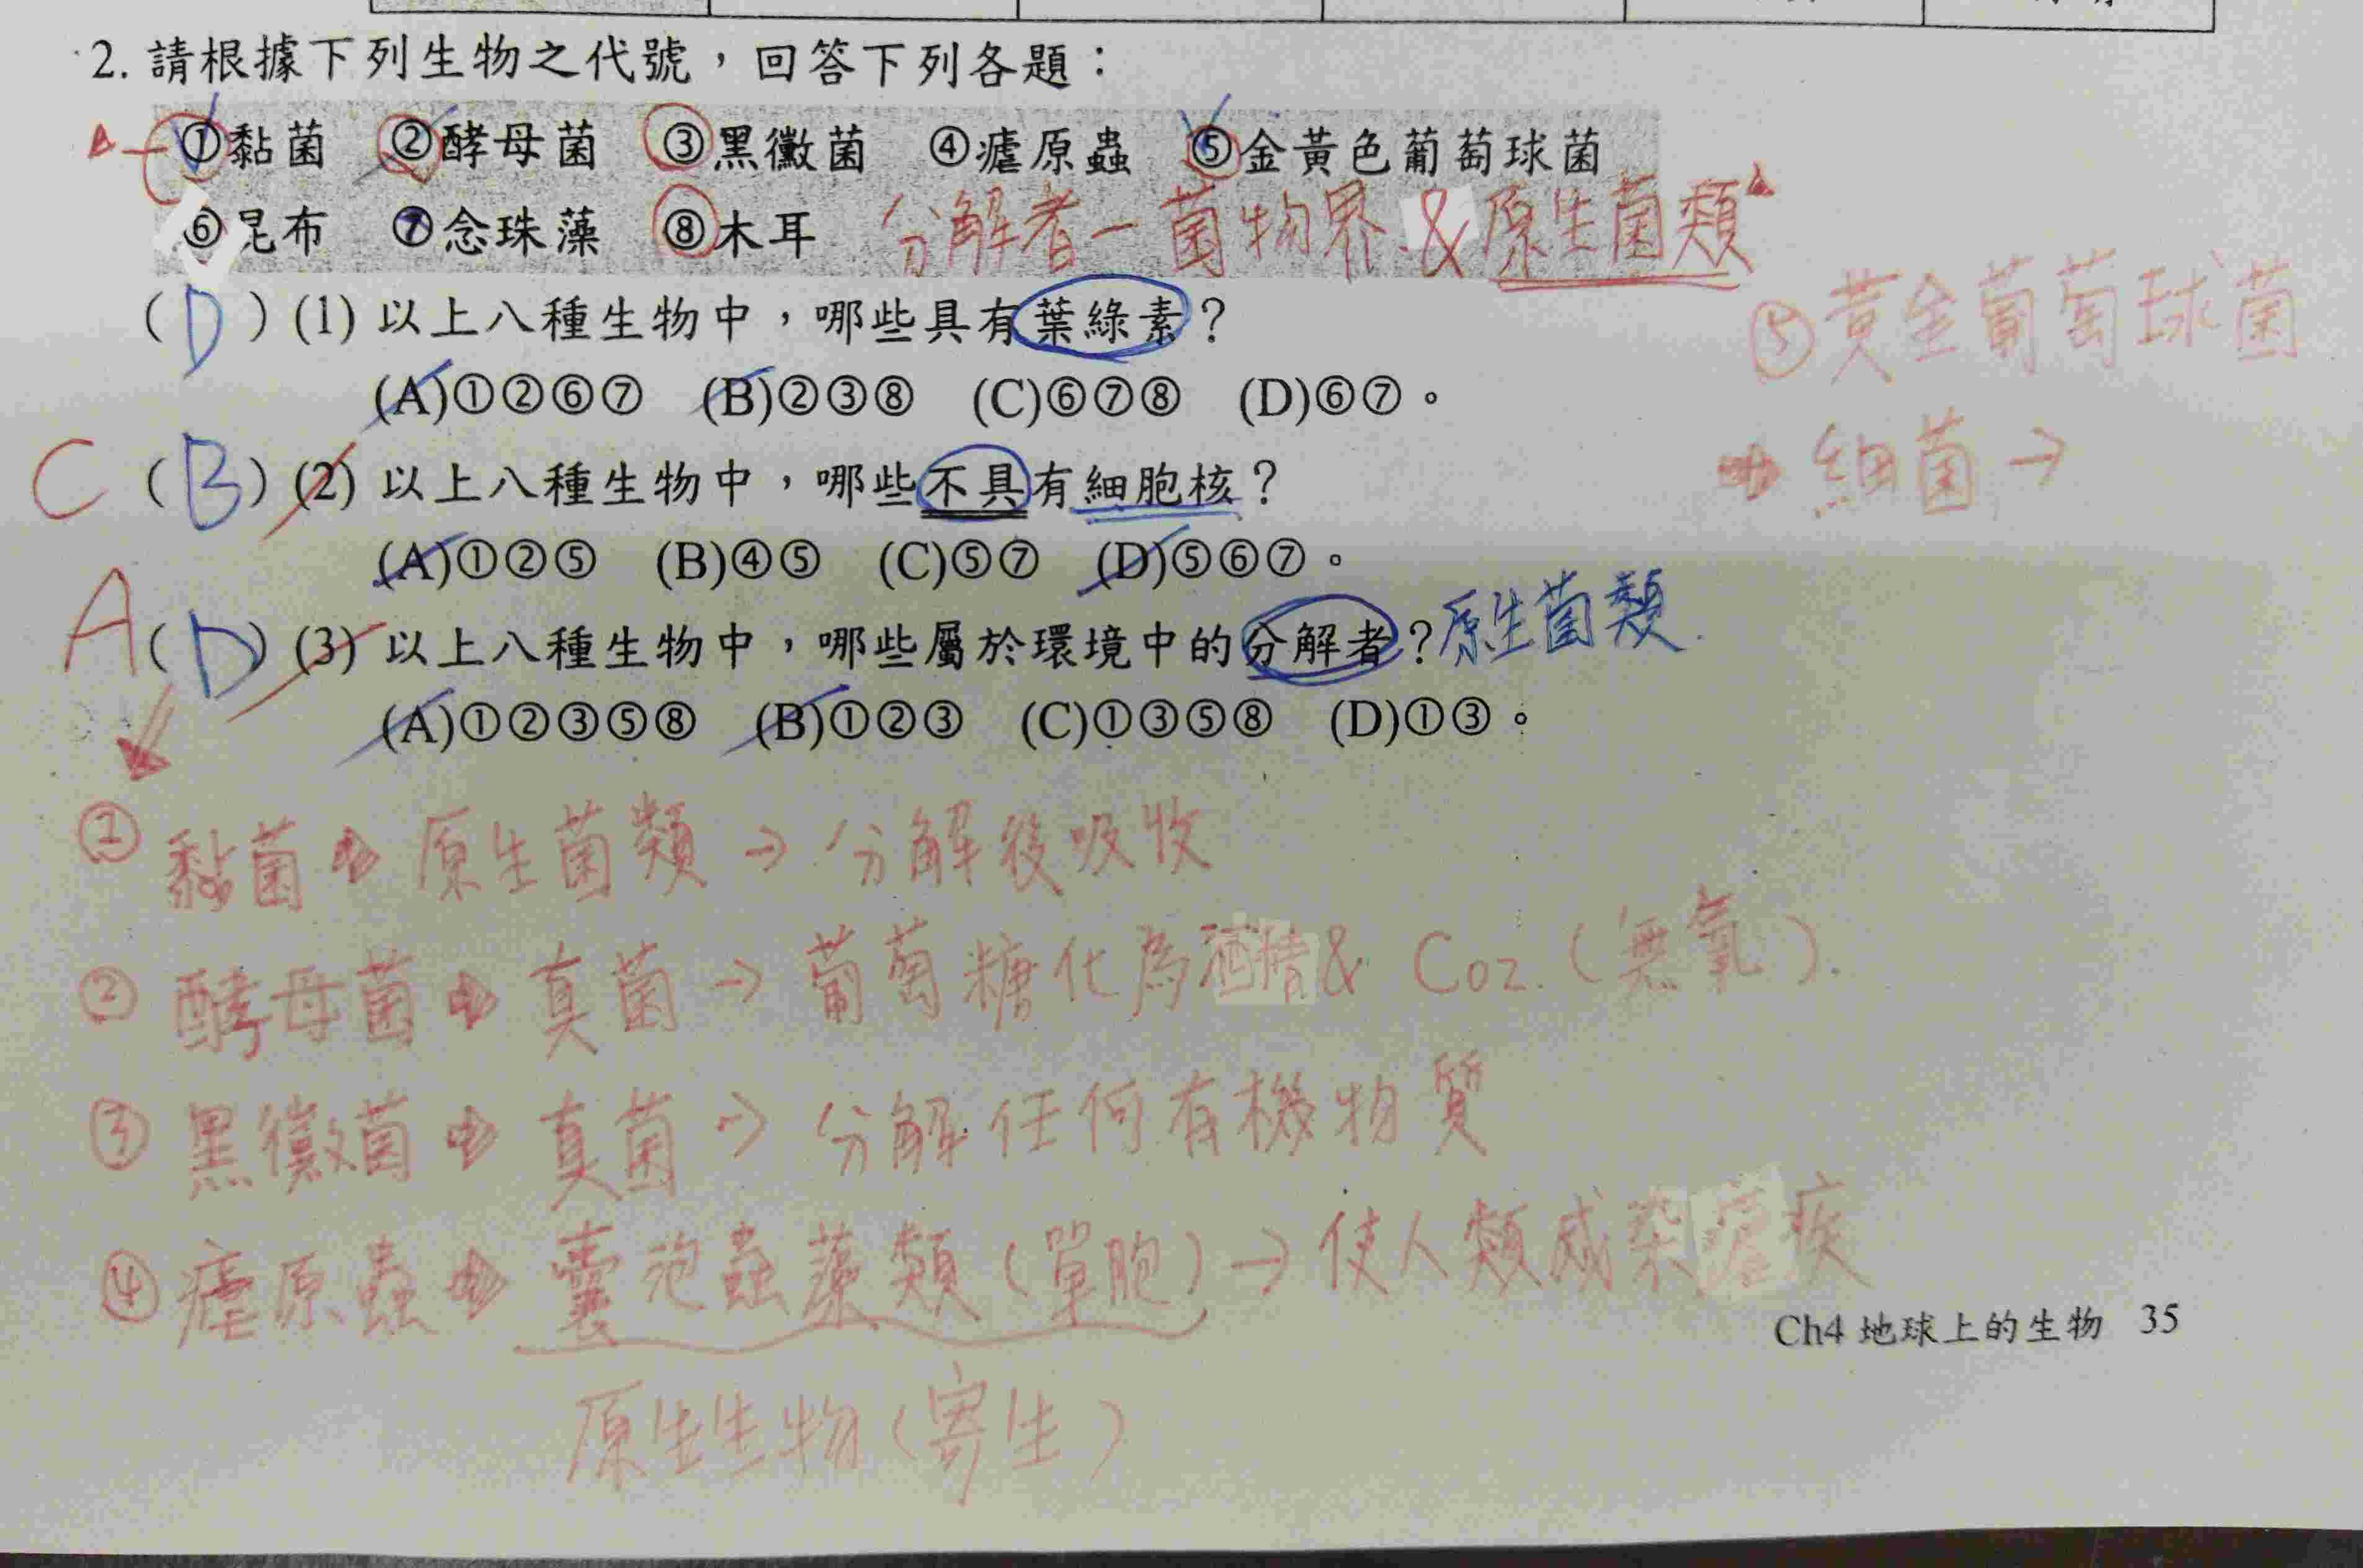 2. 請根據下列生物之代號，回答下列各題：
①黏菌 ②酵母菌 ③黑黴菌 ④瘧原蟲 ⑤金黃色葡萄球菌
⑥昆布 ⑦念珠藻 ⑧木耳 分解者－菌物界 & 原生菌類
⑤黃金葡萄球菌
(D) (1) 以上八種生物中，哪些具有葉綠素？
(A)①②⑥⑦ (B)②③⑧ (C)⑥⑦⑧ (D)⑥⑦。
→ 細菌 →
C (B) (2) 以上八種生物中，哪些不具有細胞核？
(A)①②⑤ (B)④⑤ (C)⑤⑦ (D)⑤⑥⑦。
A (D) (3) 以上八種生物中，哪些屬於環境中的分解者？原生菌類
(A)①②③⑤⑧ (B)①②③ (C)①③⑤⑧ (D)①③。
① 黏菌 → 原生菌類 → 分解後吸收
② 酵母菌 → 真菌 → 葡萄糖化為酒精 & CO2. (無氧).
③ 黑黴菌 → 真菌 → 分解任何有機物質
④ 瘧原蟲 → 囊泡蟲藻類 (單胞) → 使人類感染瘧疾
Ch4 地球上的生物 35
原生生物 (寄生)